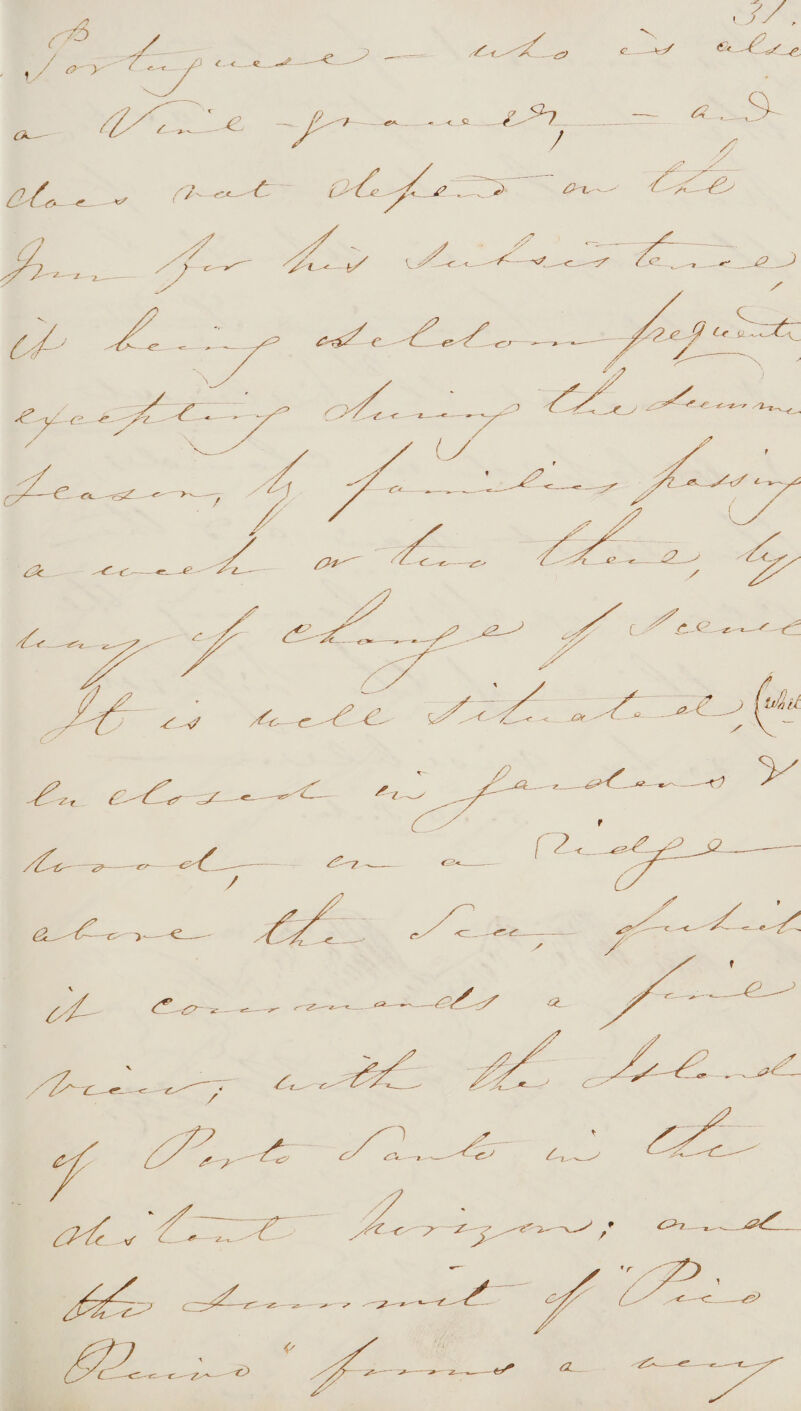 31.
Portuguese — who is also
a Vine-grower, — and
does not depend on the
Inn for his Subsistence,
it being seldom frequente
excepting during the summe
Season, by families passing
a week or two there, by
way of change of Scene
It is well Situated, (whil
Enclosed in gardens &
wood, on a Ridge
above the Sea, of which
it commands a fine
view; with the Island
of Porto Santo in the
distant horizon; and
the summit of "Pico
Ruivo" forms a very